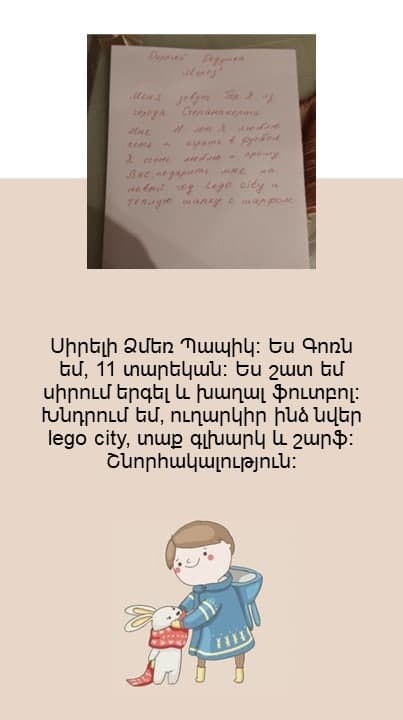 Дорогой Дедушка
Мороз
Меня зовут Гор я из
города Степанакерта
Мне 11 лет Я люблю
петь и играть в футбол
Я люблю и прошу
Вас подарить мне на
новый год Lego city и
теплую шапку с шарфом
Սիրելի Ձմեռ Պապիկ: Ես Գոռն
եմ, 11 տարեկան: Ես շատ եմ
սիրում երգել և խաղալ ֆուտբոլ:
Խնդրում եմ, ուղարկիր ինձ նվեր
lego city, տաք գլխարկ և շարֆ:
Շնորհակալություն: